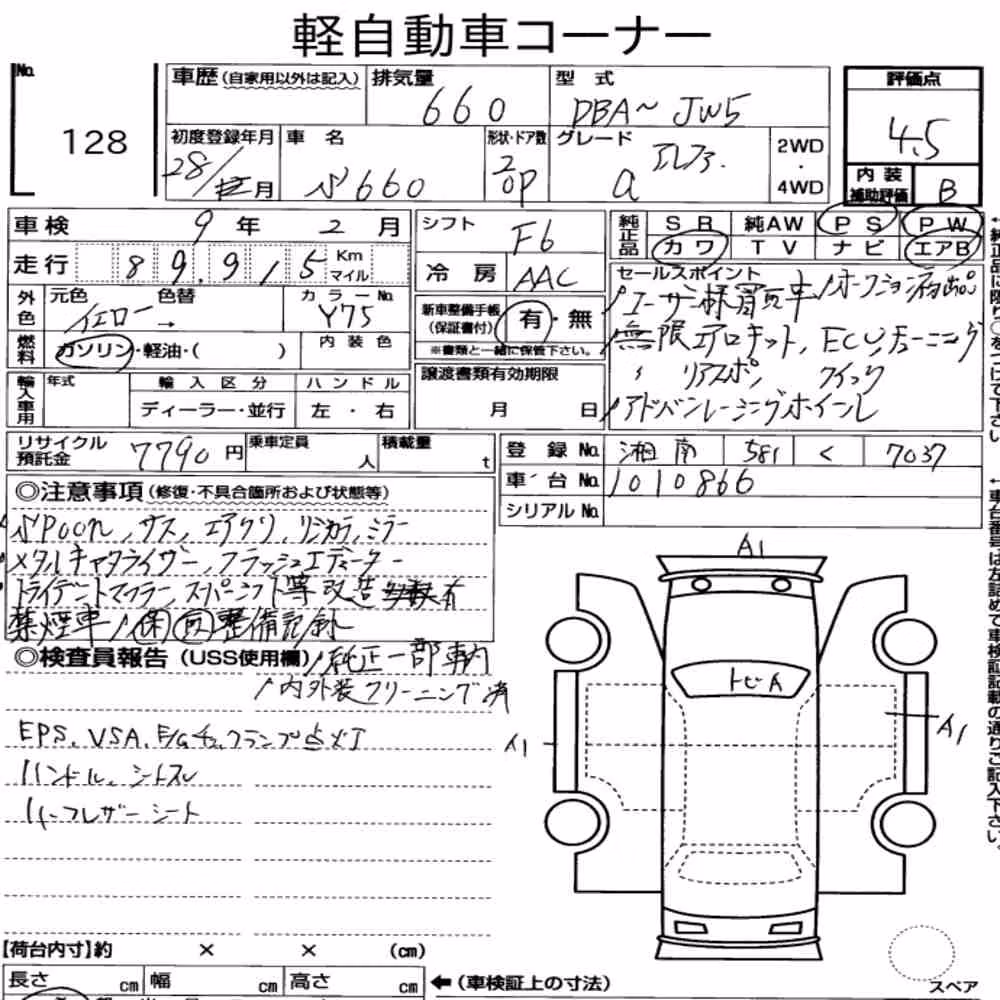 軽自動車コーナー
No.
128
車歴(自家用以外は記入)
排気量
660
型式
DBA～JW5
評価点
4.5
初度登録年月
28/ 月
車名
S660
形状・ドア数
2 OP
グレード
α アルファ.
2WD
・
4WD
内装
補助評価
B
車検
9年 2月
シフト
F6
純正品
SR 純AW PS PW
カワ TV ナビ エアB
走行
89.915 Km
マイル
冷房
AAC
セールスポイント
外色
元色 色替
イエロー→
カラーNo.
Y75
新車整備手帳
(保証書付)
有・無
※書類と一緒に保管下さい。
ユーザー様買取車 /オークション初出品
無限エアロキット, ECUチューニング
リアスポ, クイック
/アドバンレーシングホイール
燃料
ガソリン・軽油・( )
内装色
輸入車用
年式
輸入区分
ディーラー・並行
ハンドル
左・右
譲渡書類有効期限
月 日
リサイクル
預託金
7790円
乗車定員
人
積載量
t
登録No.
湘南 581 く 7037
車台No.
1010866
シリアルNo.
◎注意事項(修復・不具合箇所および状態等)
Spoon, サス, エアクリ, リジカラ, ミラー
メタルキャタライザー, フラッシュエディター
トライデントマフラー, スーパーシフト等改造多数有
禁煙車/保取整備記録
◎検査員報告(USS使用欄)
/純正一部車内
/内外装クリーニング済
EPS, VSA, E/Gチェックランプ点灯
ハンドル, シートスレ
ハーフレザーシート
A1
トビA
A1
A1
【荷台内寸】約 × × (cm)
長さ cm 幅 cm 高さ cm
←(車検証上の寸法)
スペア